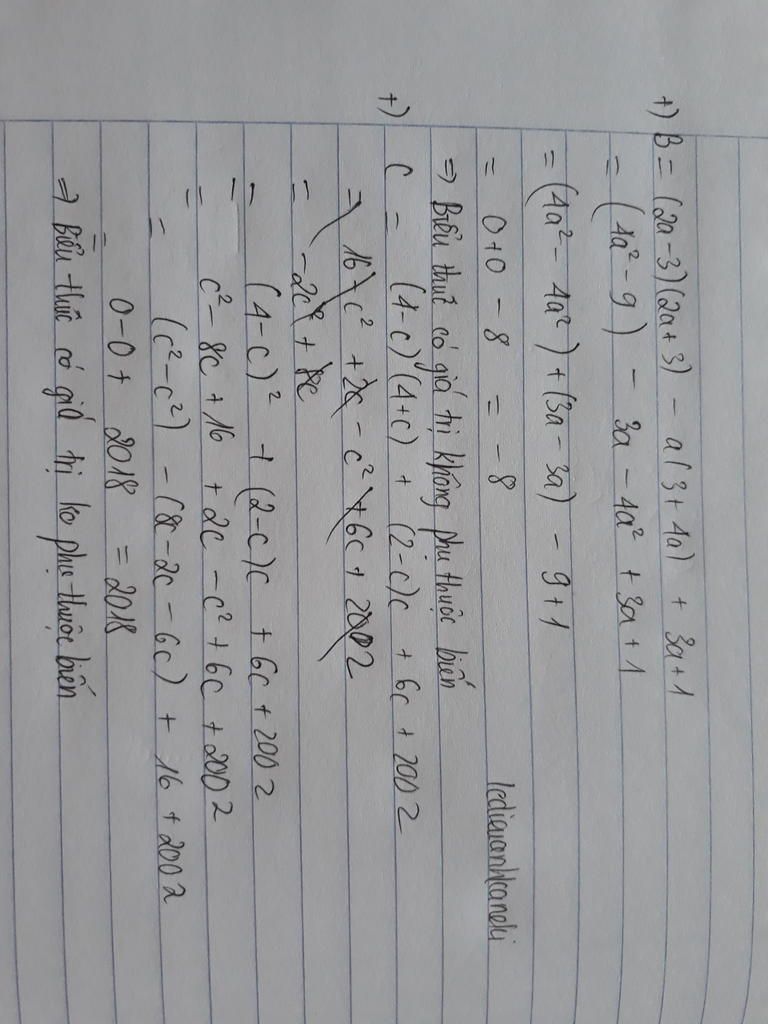 +) B = (2a-3)(2a+3) - a(3+4a) + 3a+1
= (4a² - 9) - 3a - 4a² + 3a + 1
= (4a² - 4a²) + (3a - 3a) - 9+1
= 0+0 - 8 = - 8
⇒ Biểu thức có giá trị không phụ thuộc biến
+) C = (4-c)(4+c) + (2-c)c + 6c + 2002
⇒ 16 - c² + 2c - c² + 6c + 2002
= -2c² + 8c
= (4-c)² + (2-c)c + 6c + 2002
= c² - 8c + 16 + 2c - c² + 6c + 2002
= (c² - c²) - (8c - 2c - 6c) + 16 + 2002
= 0-0+ 2018 = 2018
⇒ Biểu thức có giá trị ko phụ thuộc biến